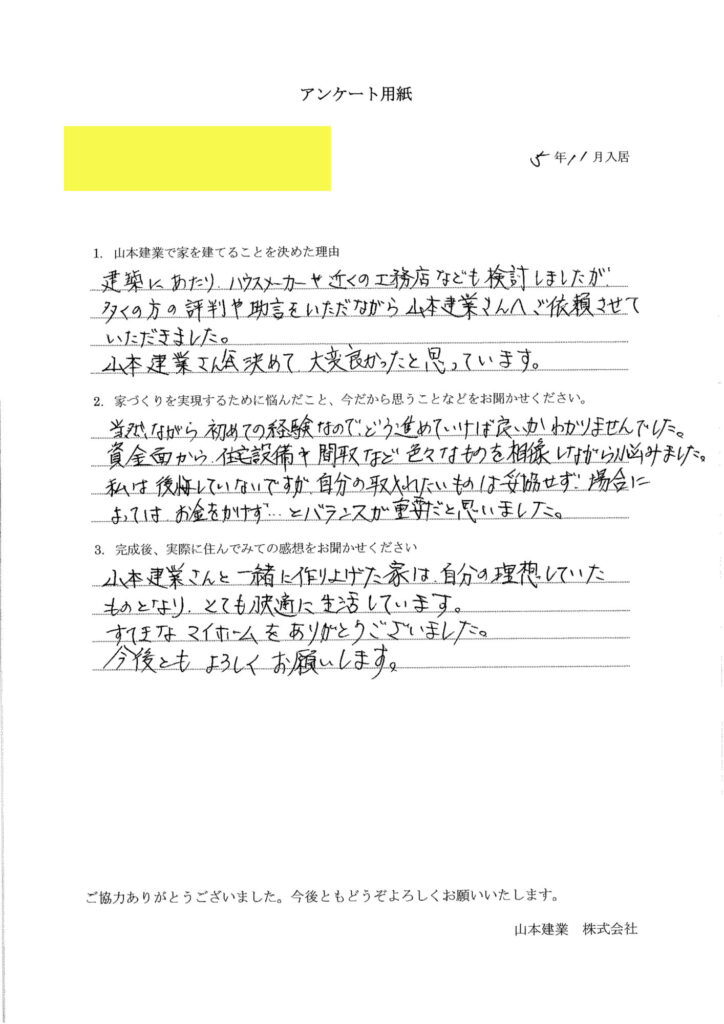 アンケート用紙
5年11月入居
1. 山本建業で家を建てることを決めた理由
建築にあたり、ハウスメーカーや近くの工務店なども検討しましたが、
多くの方の評判や助言をいただながら山本建業さんへご依頼させて
いただきました。
山本建業さんに決めて、大変良かったと思っています。
2. 家づくりを実現するために悩んだこと、今だから思うことなどをお聞かせください。
当然ながら初めての経験なので、どう進めていけば良いかわかりませんでした。
資金面から、住宅設備や間取など色々なものを想像しながら悩みました。
私は後悔していないですが、自分の取入れたいものは妥協せず、場合に
よっては、お金をかけず…とバランスが重要だと思いました。
3. 完成後、実際に住んでみての感想をお聞かせください
山本建業さんと一緒に作り上げた家は、自分の理想していた
ものとなり、とても快適に生活しています。
すてきなマイホームをありがとうございました。
今後ともよろしくお願いします。
ご協力ありがとうございました。今後ともどうぞよろしくお願いいたします。
山本建業 株式会社